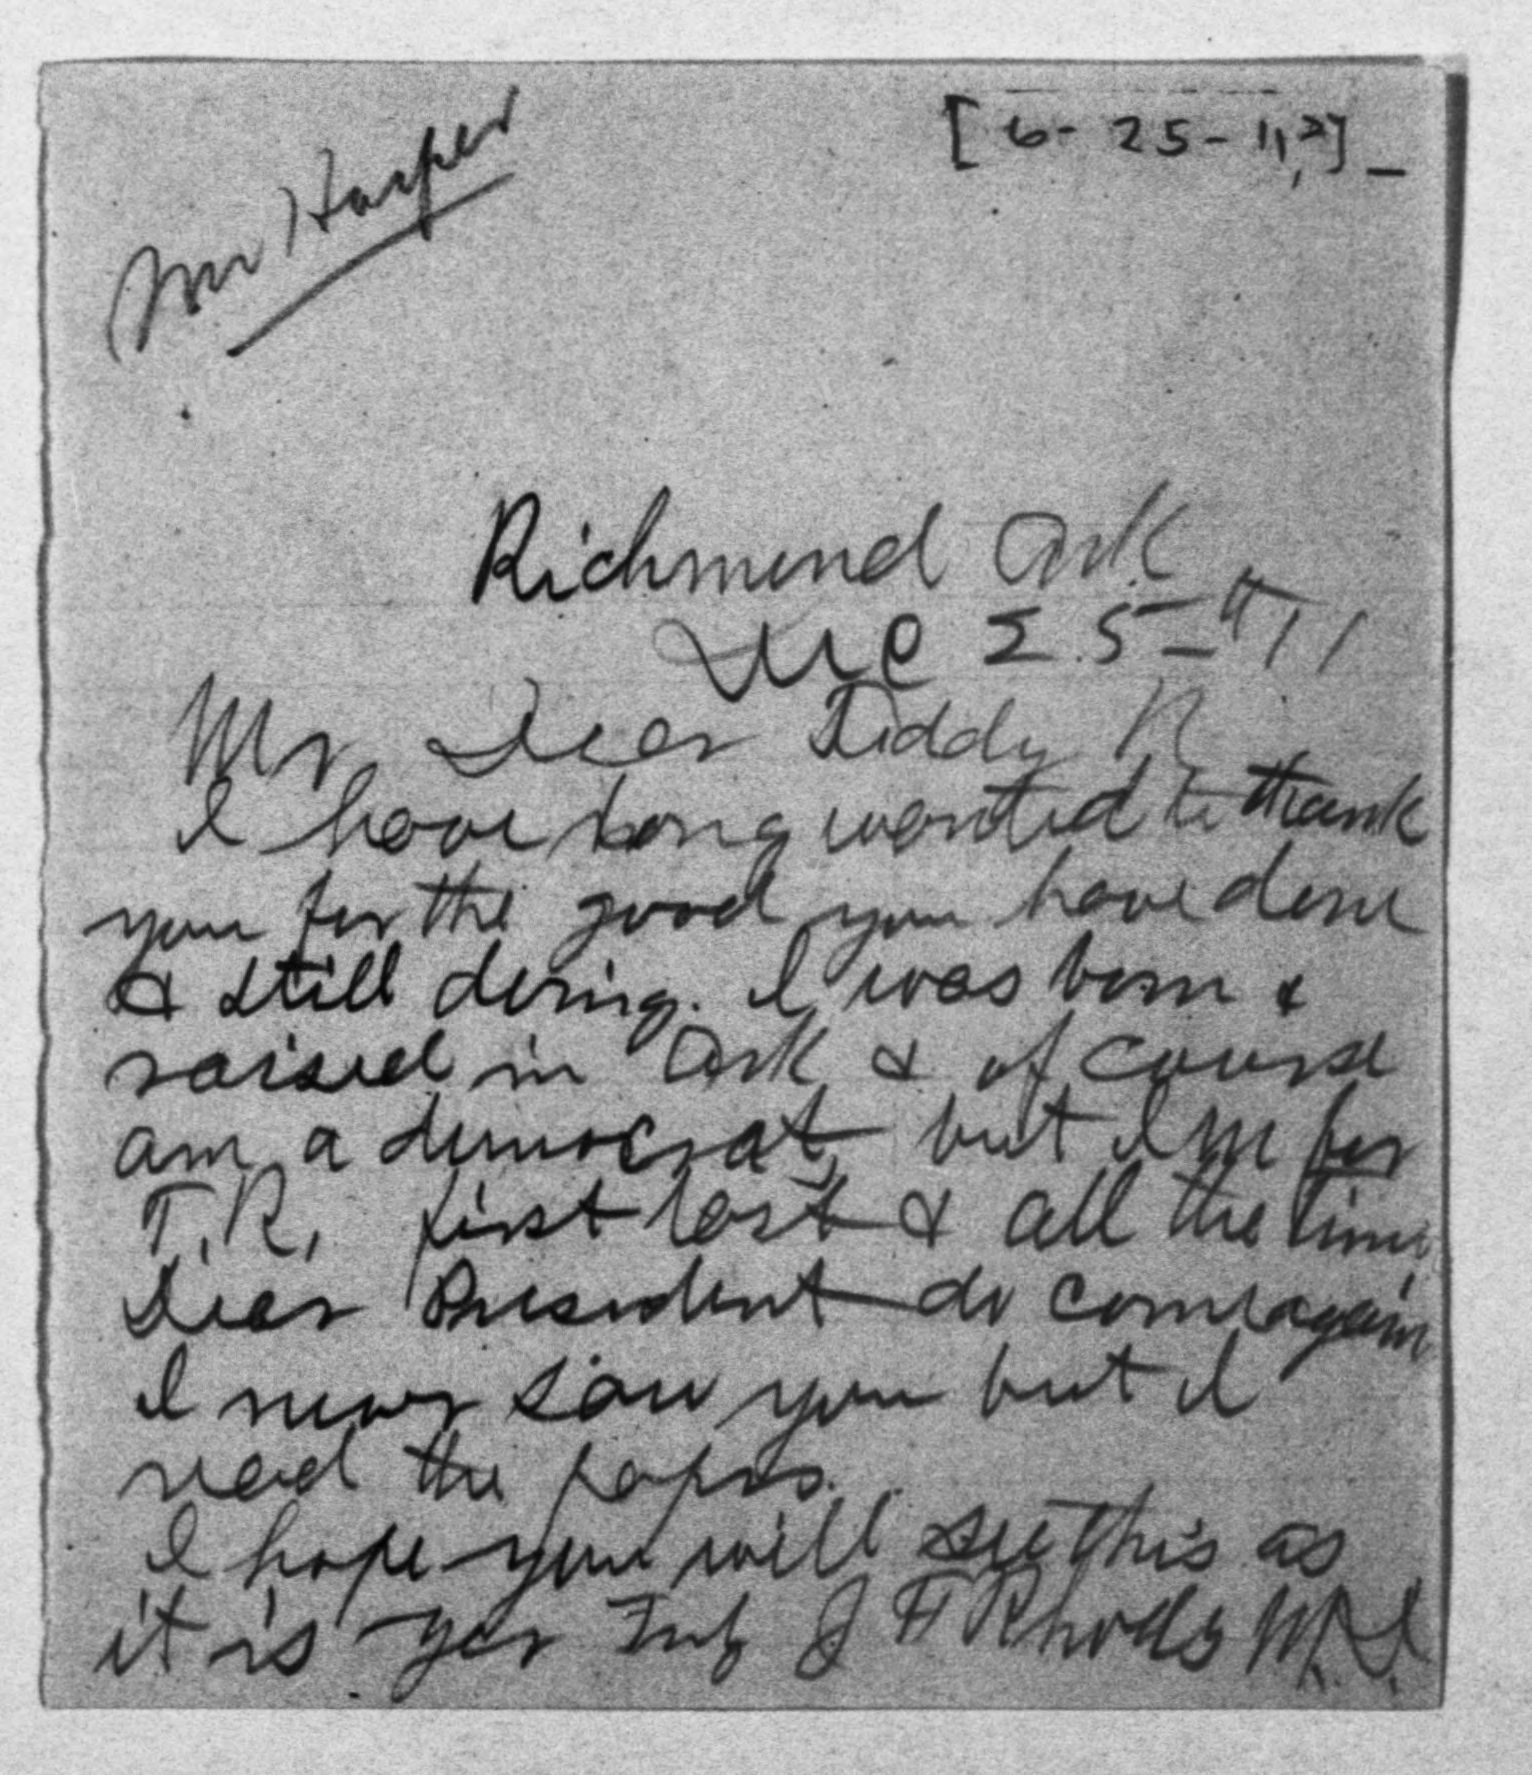 Mr Harper
[6-25-11,?]_
Richmond Ark
25-th 11
My Dear Tiddy R
I have long wanted to thank
you for the good you have done
& still doing. I was born &
raised in Ark & of course
am a democrat but I'm for
T.R. first last & all the time
Dear President do come again
I never saw you but I
read the papers.
I hope you will see this as
it is yor Truly J F Rhodes M.D.